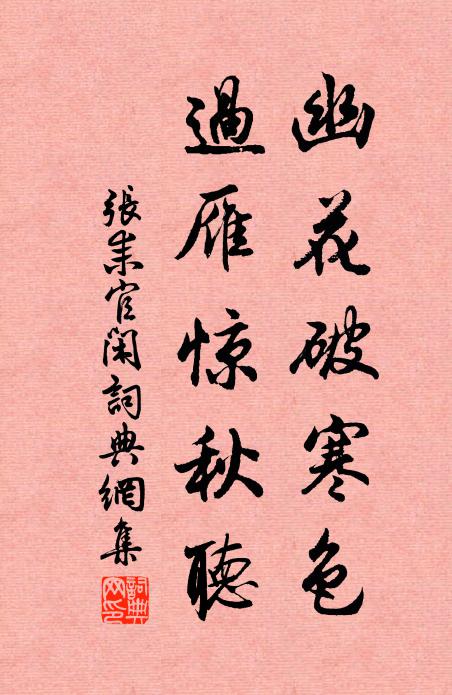 幽花破寒色
過雁惊秋聽
張耒官閑詞典網集
詞典網印